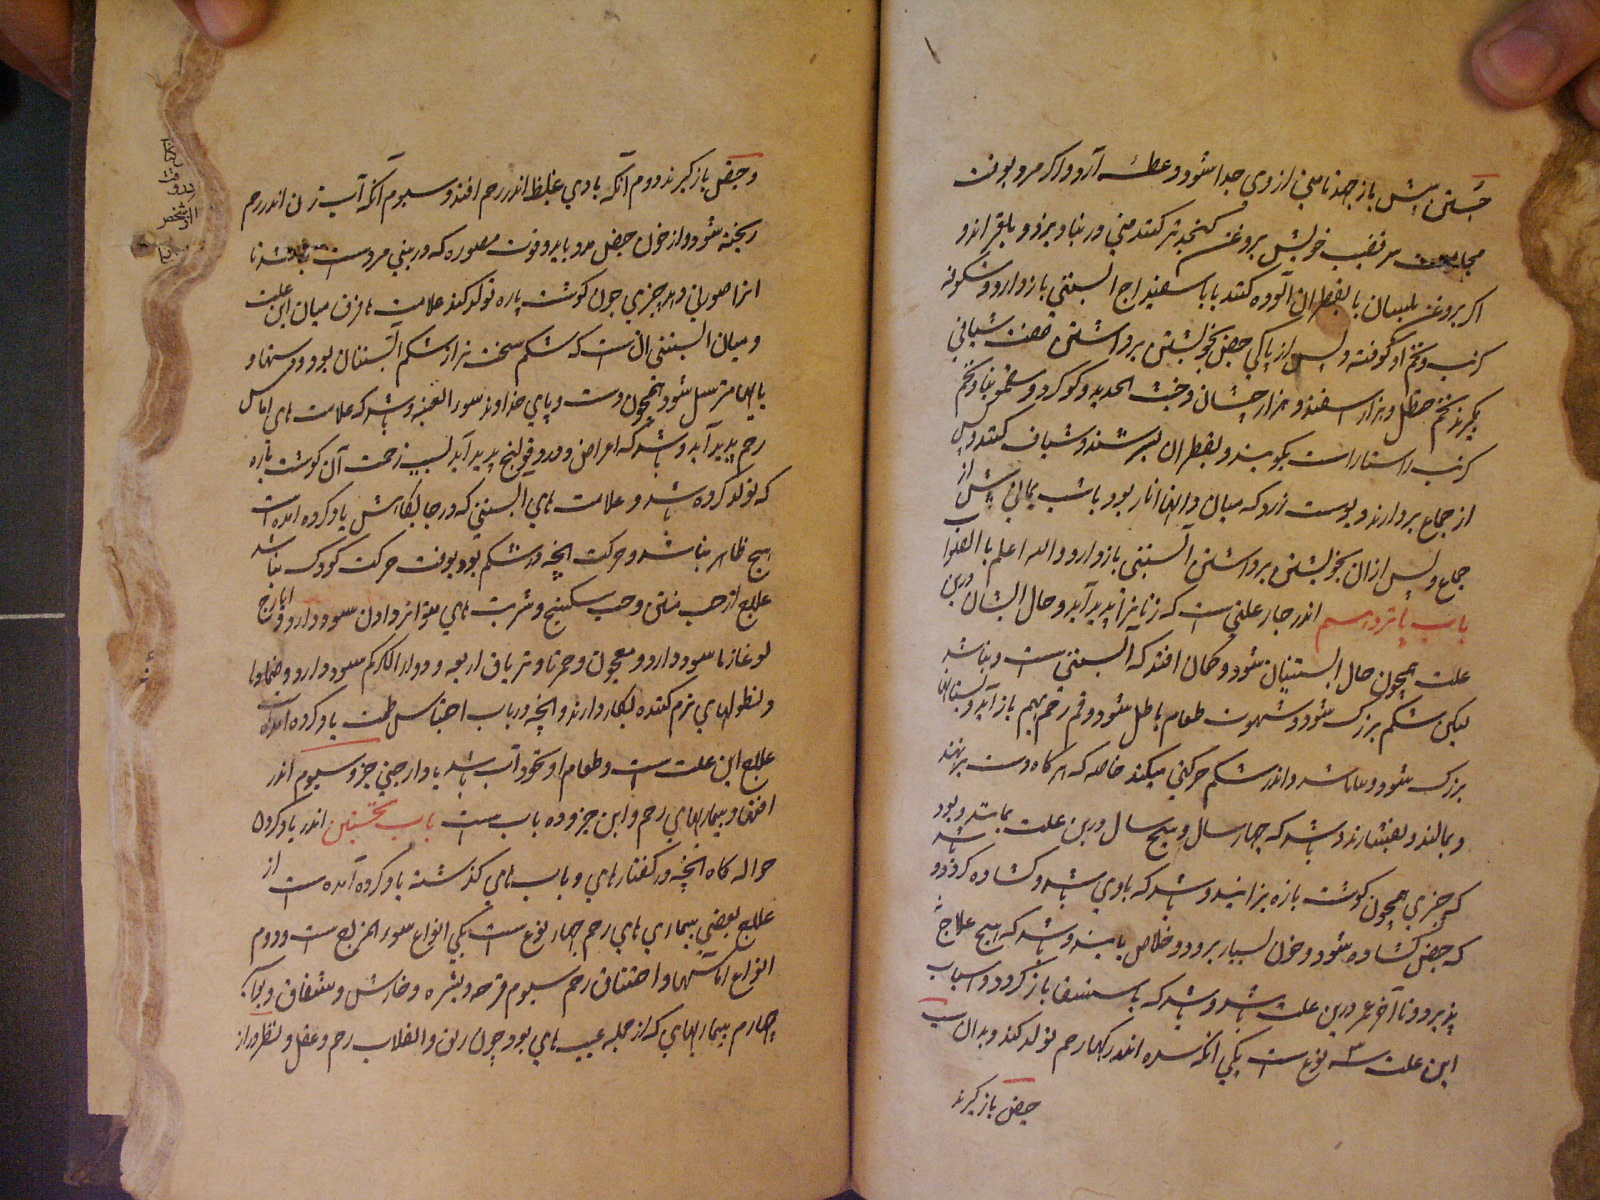 جستن پیش باز جهد تا منی از وی جدا شود و عطسه آرد و اگر مرد بوقت
مجامعت سر قضیب خویش بروغن کنجد تر کند منی در نیاویزد و بلغزاند و
اگر بروغن بلسان یا بقطران آلوده کنند یا باسفیداج آبستنی باز دارد و شکوفه
کرنب و تخم او کوفته و پس از پاکی حیض بخویشتن برداشتن صفت شیافی
بگیرند تخم حنظل و هزار اسفند و هزار چشان و خبث الحدید و کوکرد و سقمونیا و تخم
کرنب راستاراست بکوبند و بقطران بسرشند و شیاف کنند و پس
از جماع بردارند و پوست زرد که میان دانهاء انار بود پیش از
جماع و پس ازان بخویشتن برداشتن آبستنی باز دارد والله اعلم بالصواب
باب پانزدهم اندر جار علتی است که زنانرا پدید آید و حال ایشان درین
علت همچون حال آبستنان شود و گمان افتد که آبستنی است و نباشد
لیکن شکم بزرگ شود و شهوت طعام باطل شود و فم رحم بهم باز آید و پستانها
بزرک شود و باشد و اندر شکم حرکتی میکند خاصه که هرگاه دست برنهند
و بمالند و بفشارند و باشد که چهار سال و پنج سال درین علت بمانند و بود
که چیزی همچون کوشت پاره بزایند و باشد که بادی باشد و کشاده کردد و
که حیض کشاده شود و خون بسیار برود و خلاص یابند و باشد که هیچ علاج
نپذیرد و تا آخر عمر درین علت باشد و باشد که باستسقا باز کردد و اسباب
این علت سه نوع است یکی آنکه سده اندر رکهاء رحم تولد کند و بدان سبب
حیض باز گیرند
و حیض باز گیرند دوم آنکه بادی غلیظ اندر رحم افتد و سیوم آنکه آب زن اندر رحم
ریخته شود و از خون حیض مدد یابد و قوت مصوره که در منی مرد است نباشد تا
انرا صورتی دهد چیزی چون کوشت پاره تولد کند علامت ها فرق میان این علت
و میان آبستنی آن است که شکم سخت تر از شکم آبستنان بود و دستها و
پایها مترهل شود همچون دست و پای خداوند سوء القنیه و باشد که علامت های آماس
رحم پدید آید و باشد که اعراض و درد قولنج پدید آید بسبب زحمت آن کوشت پاره
که تولد کرده باشد و علامت های آبستنی که در جایگاهش یاد کرده آمده است
هیچ ظاهر نباشد و حرکت آنچه در شکم بود بوقت حرکت کودک نباشد
علاج از حب منتن و حب سکبینج و شربت های متواتر دادن سود دارد و ایارج
لوغاذیا سود دارد و معجون و تریاق اربعه و دواء الکرکم سود دارد و ضمادها
و نطولهای نرم کننده بکار دارند و آنچه در باب احتباس طمث یاد کرده آمده است
علاج این علت است و طعام او نخود آب باشد با دارچینی جزو سیوم اندر
افتها و بیماریهای رحم و این جزو ده باب است باب نخستین اندر یاد کردن
حواله گاه آنچه در گفتارهای و باب های کذشته یاد کرده آمده است از
علاج بعضی بیماری های رحم چهار نوع است یکی انواع سوء المزاج است و دوم
انواع آماسها و اختناق رحم سیوم قرحه و بشره و خارش و شقاق و بواسیر
چهارم بیماریهای که از جمله عیب های بود چون رتق و انقلاب رحم و عقل و